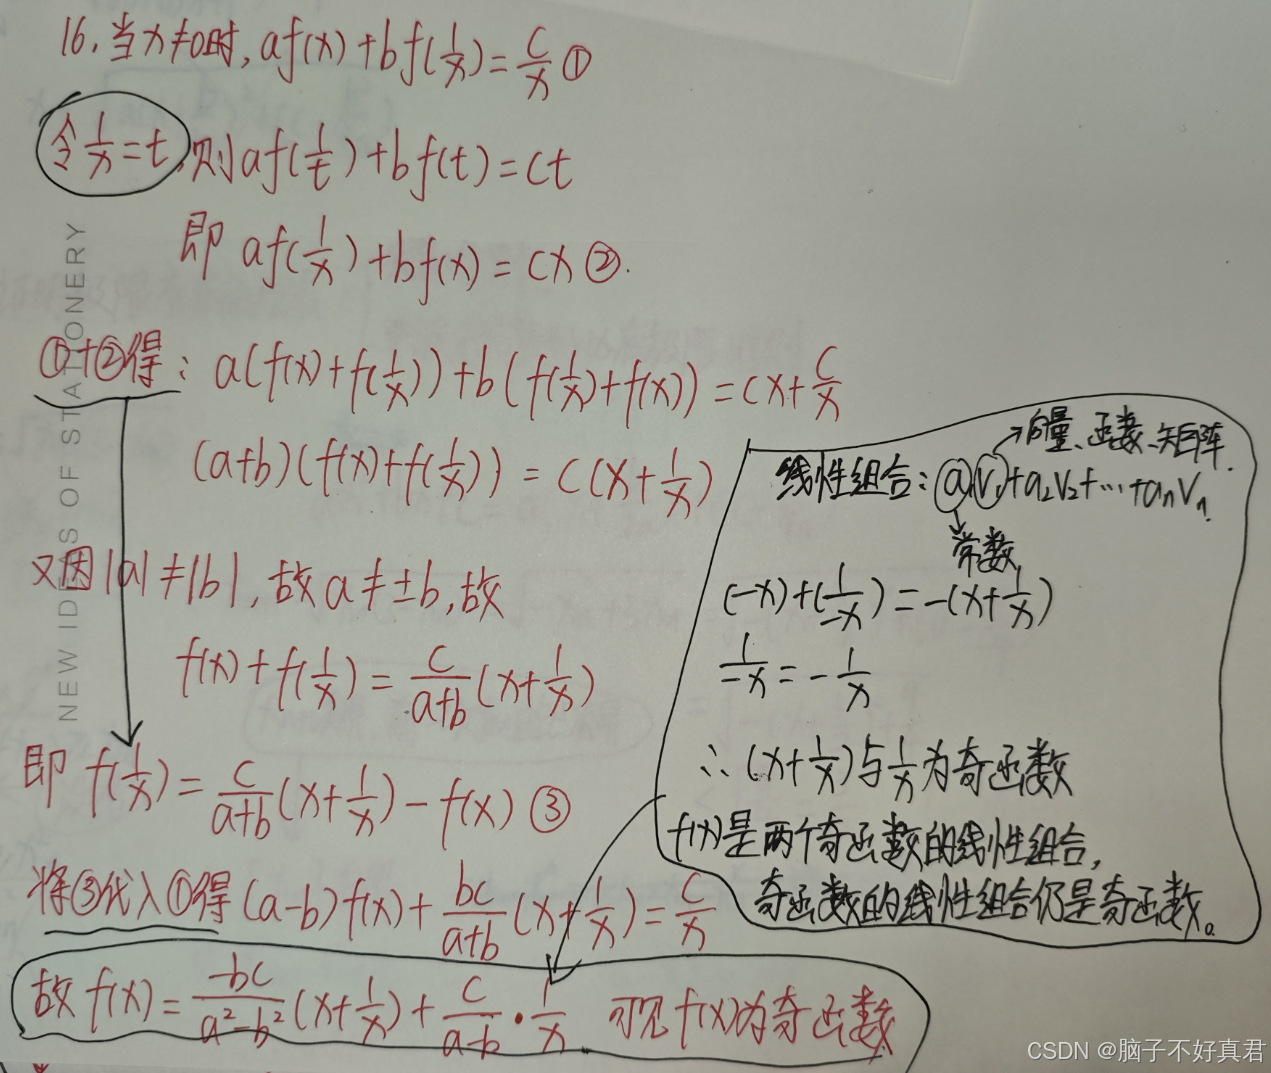 16.当x≠0时,af(x)+bf(1/x)=c/x ①
令1/x=t,则af(1/t)+bf(t)=ct
即 af(1/x)+bf(x)=cx ②.
①+②得: a(f(x)+f(1/x))+b(f(1/x)+f(x))=cx+c/x
(a+b)(f(x)+f(1/x))=c(x+1/x)
又因|a|≠|b|,故a≠±b,故
f(x)+f(1/x)=c/(a+b)(x+1/x)
即 f(1/x)=c/(a+b)(x+1/x)-f(x) ③
将③代入①得(a-b)f(x)+bc/(a+b)(x+1/x)=c/x
故f(x)=-bc/(a²-b²)(x+1/x)+c/(a-b)·1/x 可见f(x)为奇函数
→向量、函数、矩阵.
线性组合:a₁v₁+a₂v₂+…+aₙvₙ.
常数
(-x)+(1/-x)=-(x+1/x)
1/-x=-1/x
∴(x+1/x)与1/x为奇函数
f(x)是两个奇函数的线性组合,
奇函数的线性组合仍是奇函数。
NEW IDEAS OF STATIONERY
CSDN @脑子不好真君